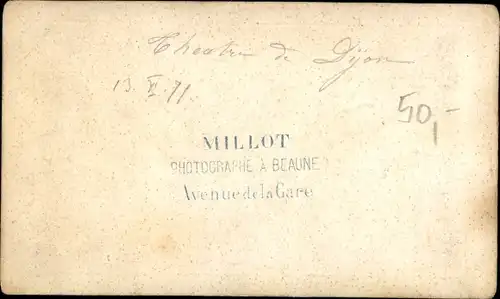 Theatre de Dijon
13. X. 71.
50,-
MILLOT
PHOTOGRAPHE À BEAUNE
Avenue de la Gare